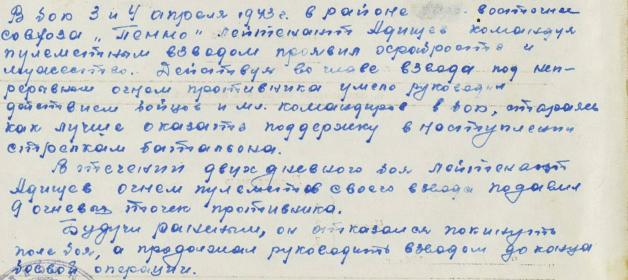 В бою 3 и 4 апреля 1943 г. в районе восточнее
совхоза "Пенно" лейтенант Адищев командуя
пулеметным взводом проявил храбрость и
мужество. Действуя во главе взвода под неп-
рерывным огнем противника умело руководил
действием бойцов и мл. командиров в бою, стараясь
как лучше оказать поддержку в наступлении
стрелкам батальона.
В течении двух дневного боя лейтенант
Адищев огнем пулеметов своего взвода подавил
9 огневых точек противника.
Будучи раненым, он отказался покинуть
поле боя, а продолжал руководить взводом до конца
боевой операции.